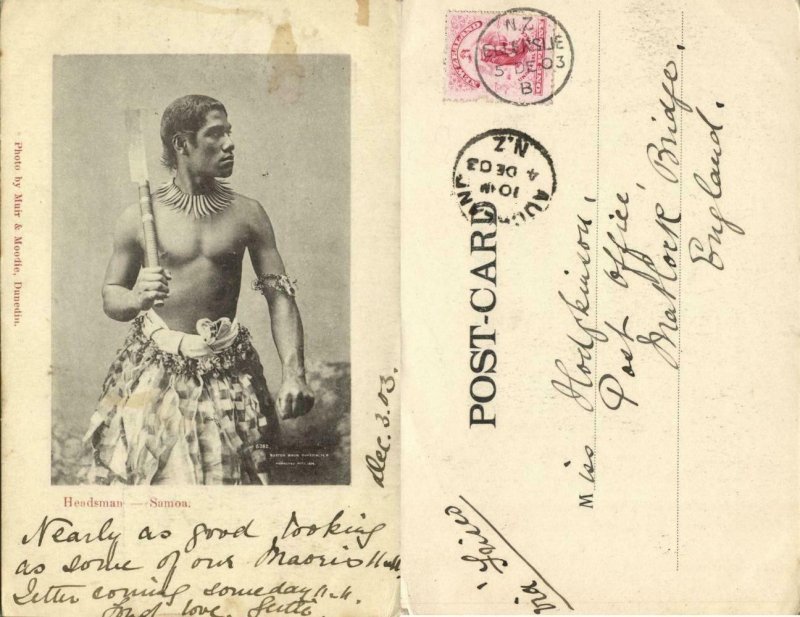 Photo by Muir & Moodie, Dunedin.
6362
BURTON BROS DUNEDIN, N.Z.
Headsman — Samoa.
Dec. 3. 03.
Nearly as good looking
as some of our Maoris
Letter coming someday
Fond love.
NEW ZEALAND
N.Z
ELLERSLIE
5 DE 03
B
AUCKLAND
10
4 DE 03
N.Z
POST-CARD
Miss Hodgkinson,
Post Office,
Matlock Bridge,
England.
via